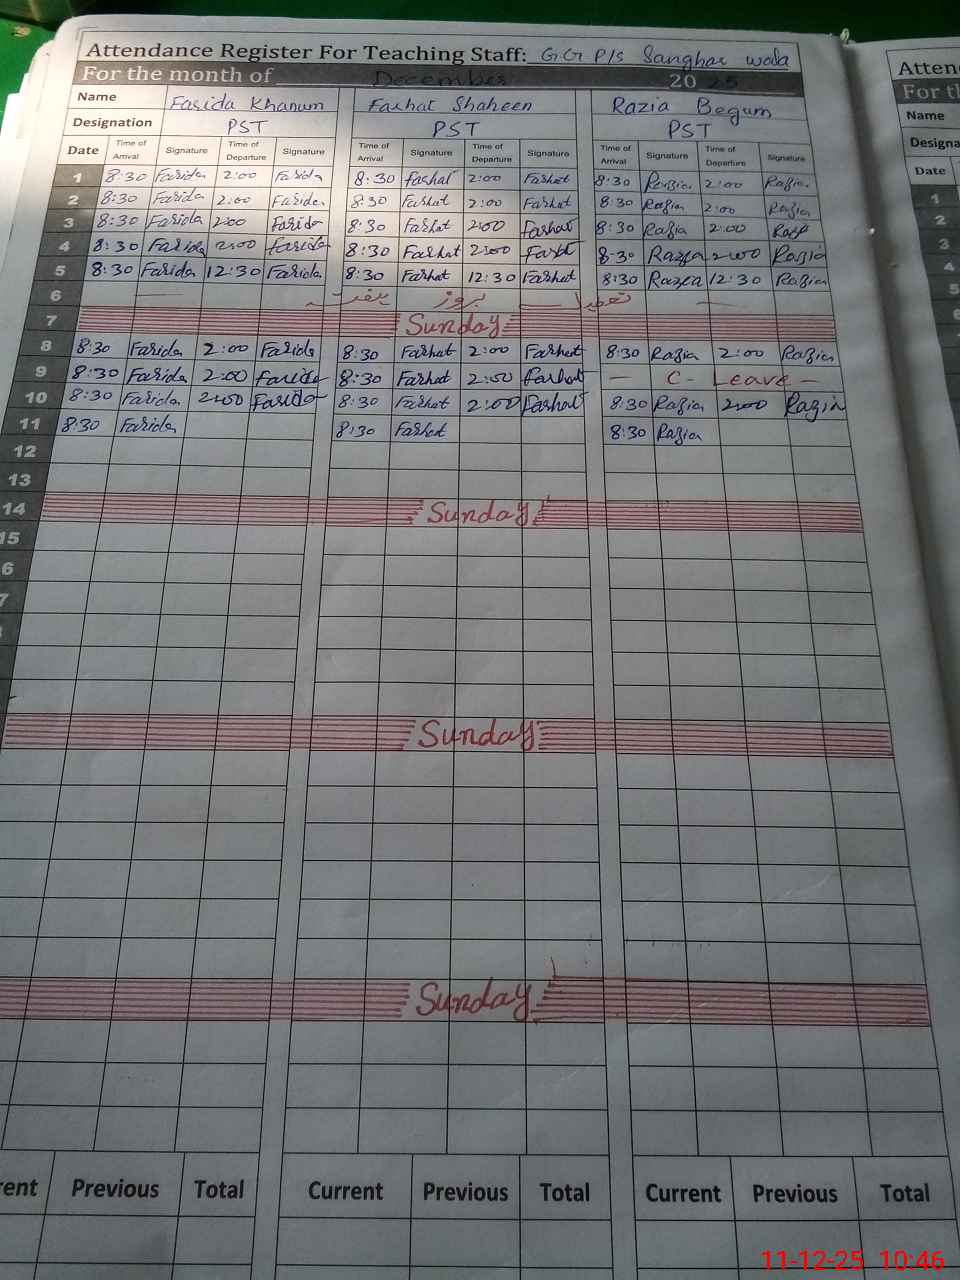 Attendance Register For Teaching Staff: G.G P/S Sanghar wala
For the month of December 20 25
Name Farida Khanum Farhat Shaheen Razia Begum
Designation PST PST PST
Date Time of Arrival Signature Time of Departure Signature Time of Arrival Signature Time of Departure Signature Time of Arrival Signature Time of Departure Signature
1 8:30 Farida 2:00 Farida 8:30 Farhat 2:00 Farhat 8:30 Razia 2:00 Razia
2 8:30 Farida 2:00 Farida 8:30 Farhat 2:00 Farhat 8:30 Razia 2:00 Razia
3 8:30 Farida 2:00 Farida 8:30 Farhat 2:00 Farhat 8:30 Razia 2:00
4 8:30 Farida 2:00 Farida 8:30 Farhat 2:00 Farhat 8:30 Razia 2:00 Razia
5 8:30 Farida 12:30 Farida 8:30 Farhat 12:30 Farhat 8:30 Razia 12:30 Razia
6 تعطیل بروز ہفتہ
7 Sunday
8 8:30 Farida 2:00 Farida 8:30 Farhat 2:00 Farhat 8:30 Razia 2:00 Razia
9 8:30 Farida 2:00 Farida 8:30 Farhat 2:00 Farhat — C- Leave —
10 8:30 Farida 2:00 Farida 8:30 Farhat 2:00 Farhat 8:30 Razia 2:00 Razia
11 8:30 Farida 8:30 Farhat 8:30 Razia
12
13
14 Sunday
15
6
7
Sunday
Sunday
rent Previous Total Current Previous Total Current Previous Total
Atten
For th
Name
Designa
Date
1
2
3
4
5
6
7
11-12-25 10:46